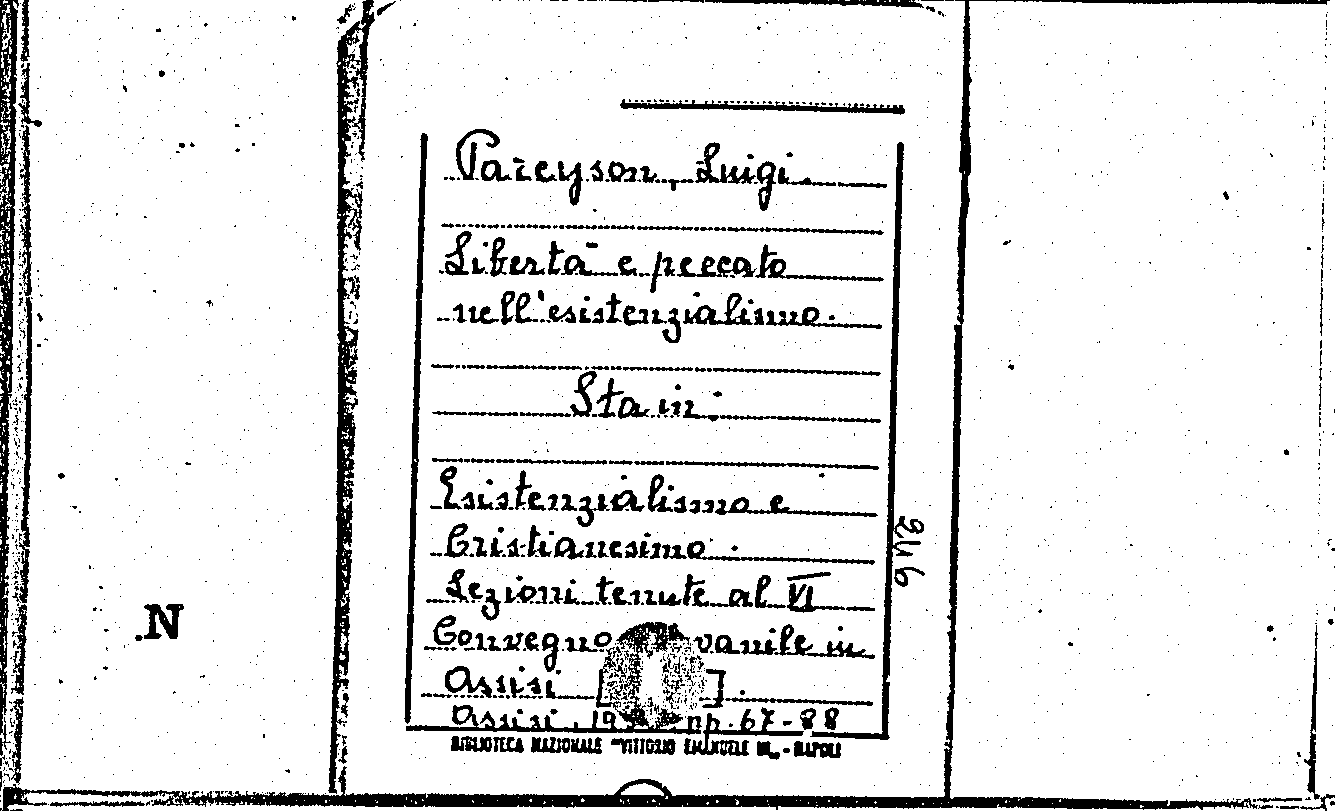 Pareyson, Luigi.
Libertà e peccato
nell'esistenzialismo.
Sta in:
Esistenzialismo e
Cristianesimo.
Lezioni tenute al VI
Convegno vanile in
Assisi [ ].
Assisi, 19 pp. 67-88
BIBLIOTECA NAZIONALE "VITTORIO EMANUELE III" - NAPOLI
246
.N